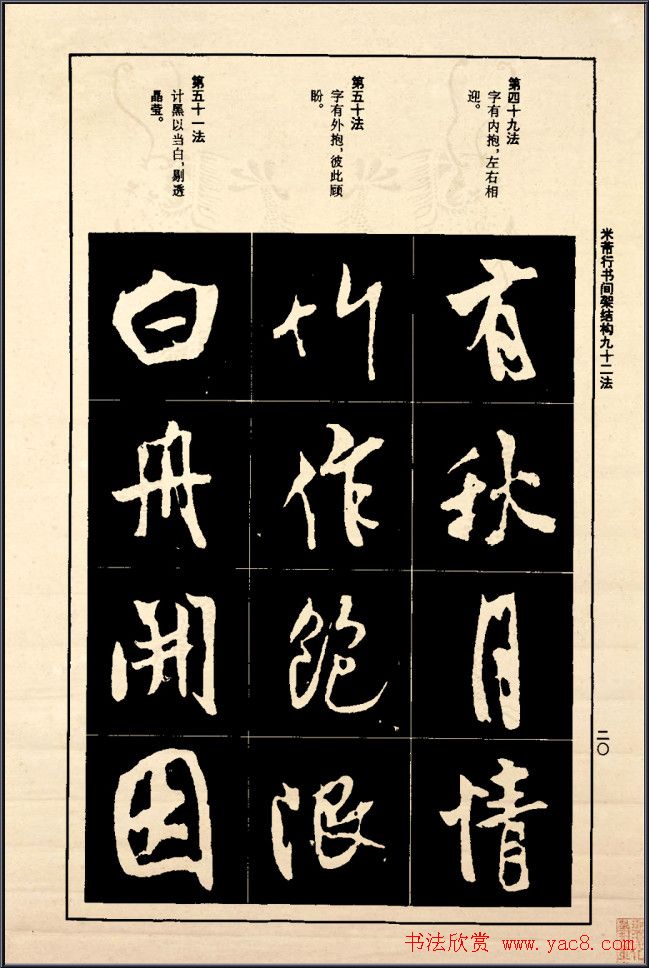 米芾行书间架结构九十二法
第四十九法
字有内抱，左右相
迎。
第五十法
字有外抱，彼此顾
盼。
第五十一法
计黑以当白，剔透
晶莹。
有秋月情
竹作饱限
白舟開因
二〇
书法欣赏 www.yac8.com